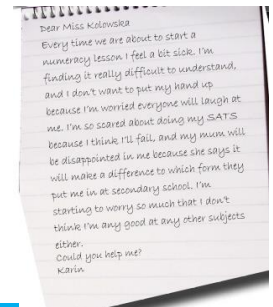 Dear Miss Kolowska
Every time we are about to start a
numeracy lesson I feel a bit sick. I'm
finding it really difficult to understand,
and I don't want to put my hand up
because I'm worried everyone will laugh at
me. I'm so scared about doing my SATS
because I think I'll fail, and my mum will
be disappointed in me because she says it
will make a difference to which form they
put me in at secondary school. I'm
starting to worry so much that I don't
think I'm any good at any other subjects
either.
Could you help me?
Karin